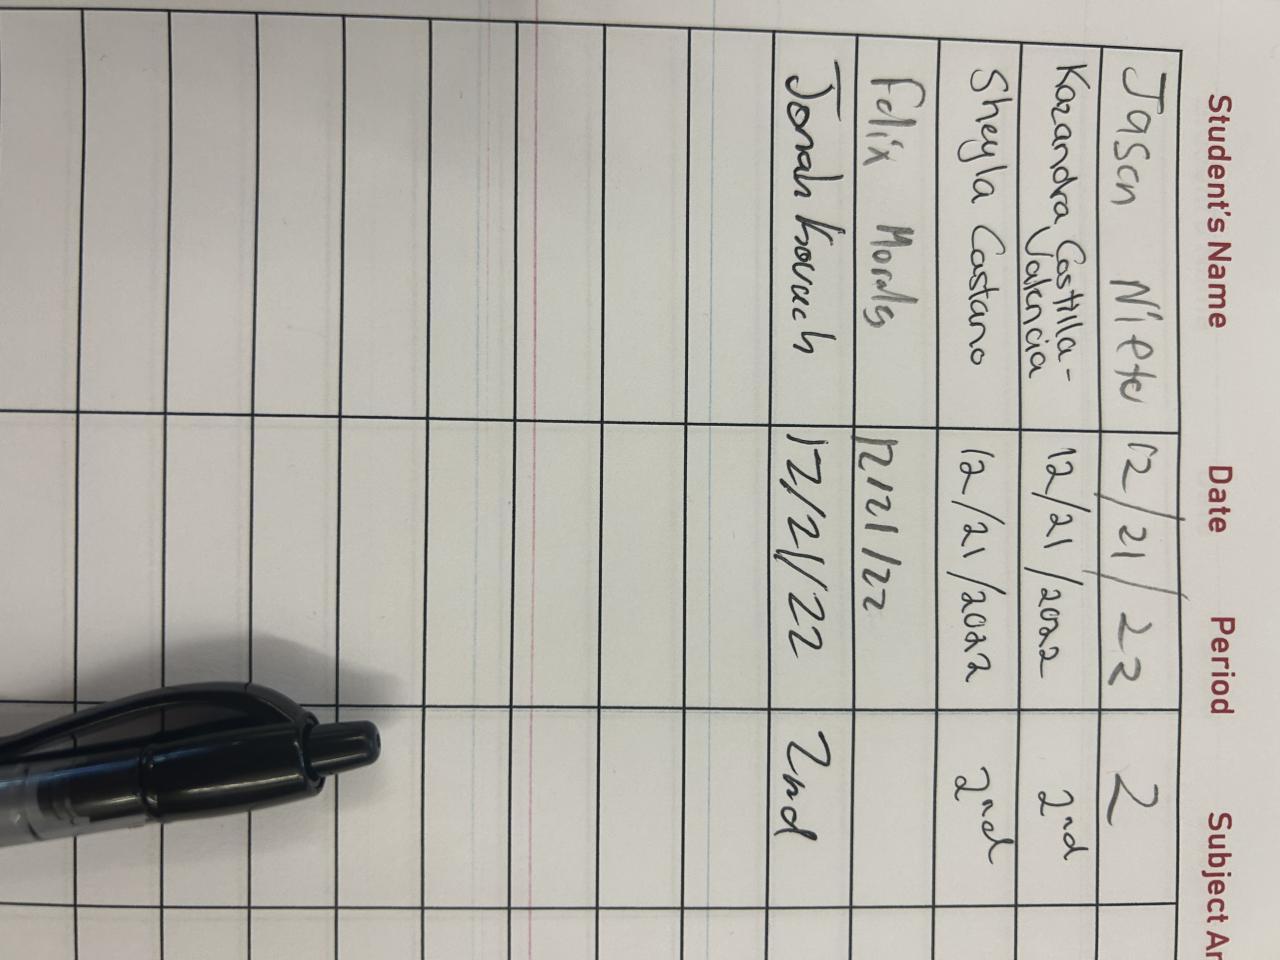 Student's Name Date Period Subject Ar
Jason 12/21/22 2
Kazandra Castilla-
Valencia 12/21/2022 2nd
Sheyla Castano 12/21/2022 2nd
Felix Morales 12/21/22
Jonah Kovach 12/21/22 2nd